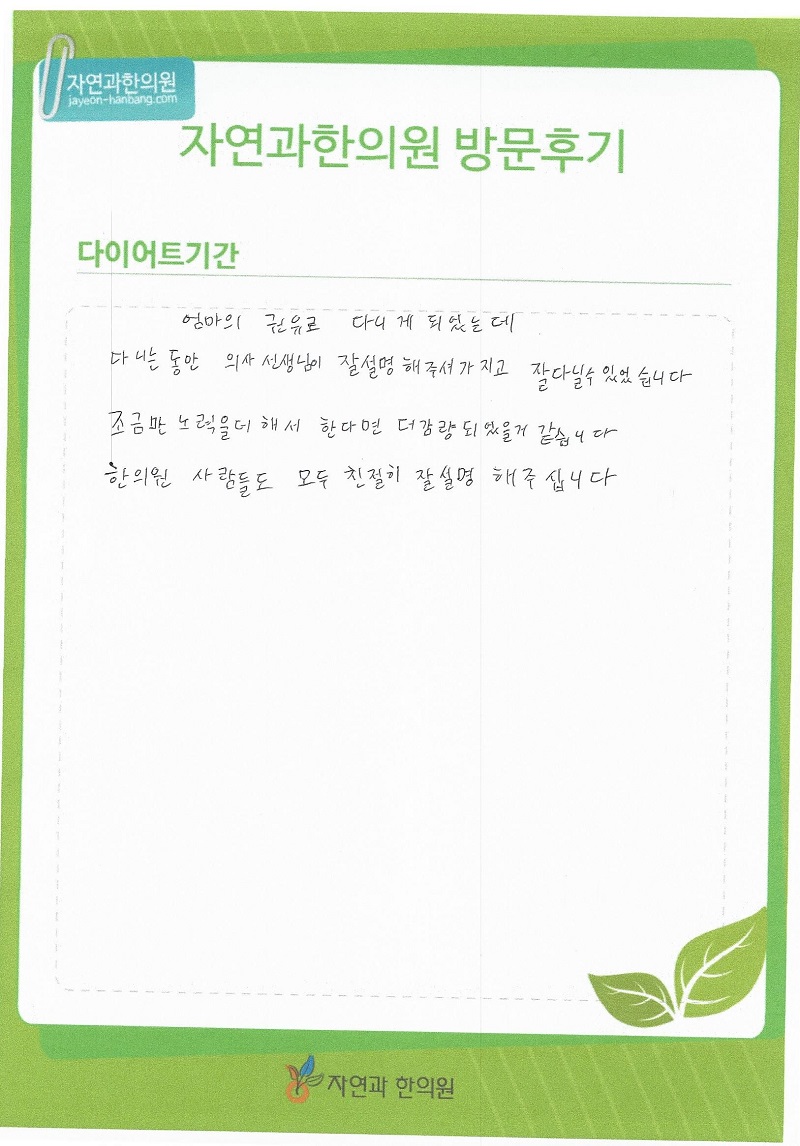 자연과한의원
jayeon-hanbang.com
자연과한의원 방문후기
다이어트기간
엄마의 권유로 다니게 되었는데
다니는 동안 의사 선생님이 잘설명 해주셔가지고 잘다닐수 있었습니다
조금만 노력을더 해서 한다면 더감량되었을거 같습니다
한의원 사람들도 모두 친절히 잘설명 해주십니다
자연과 한의원